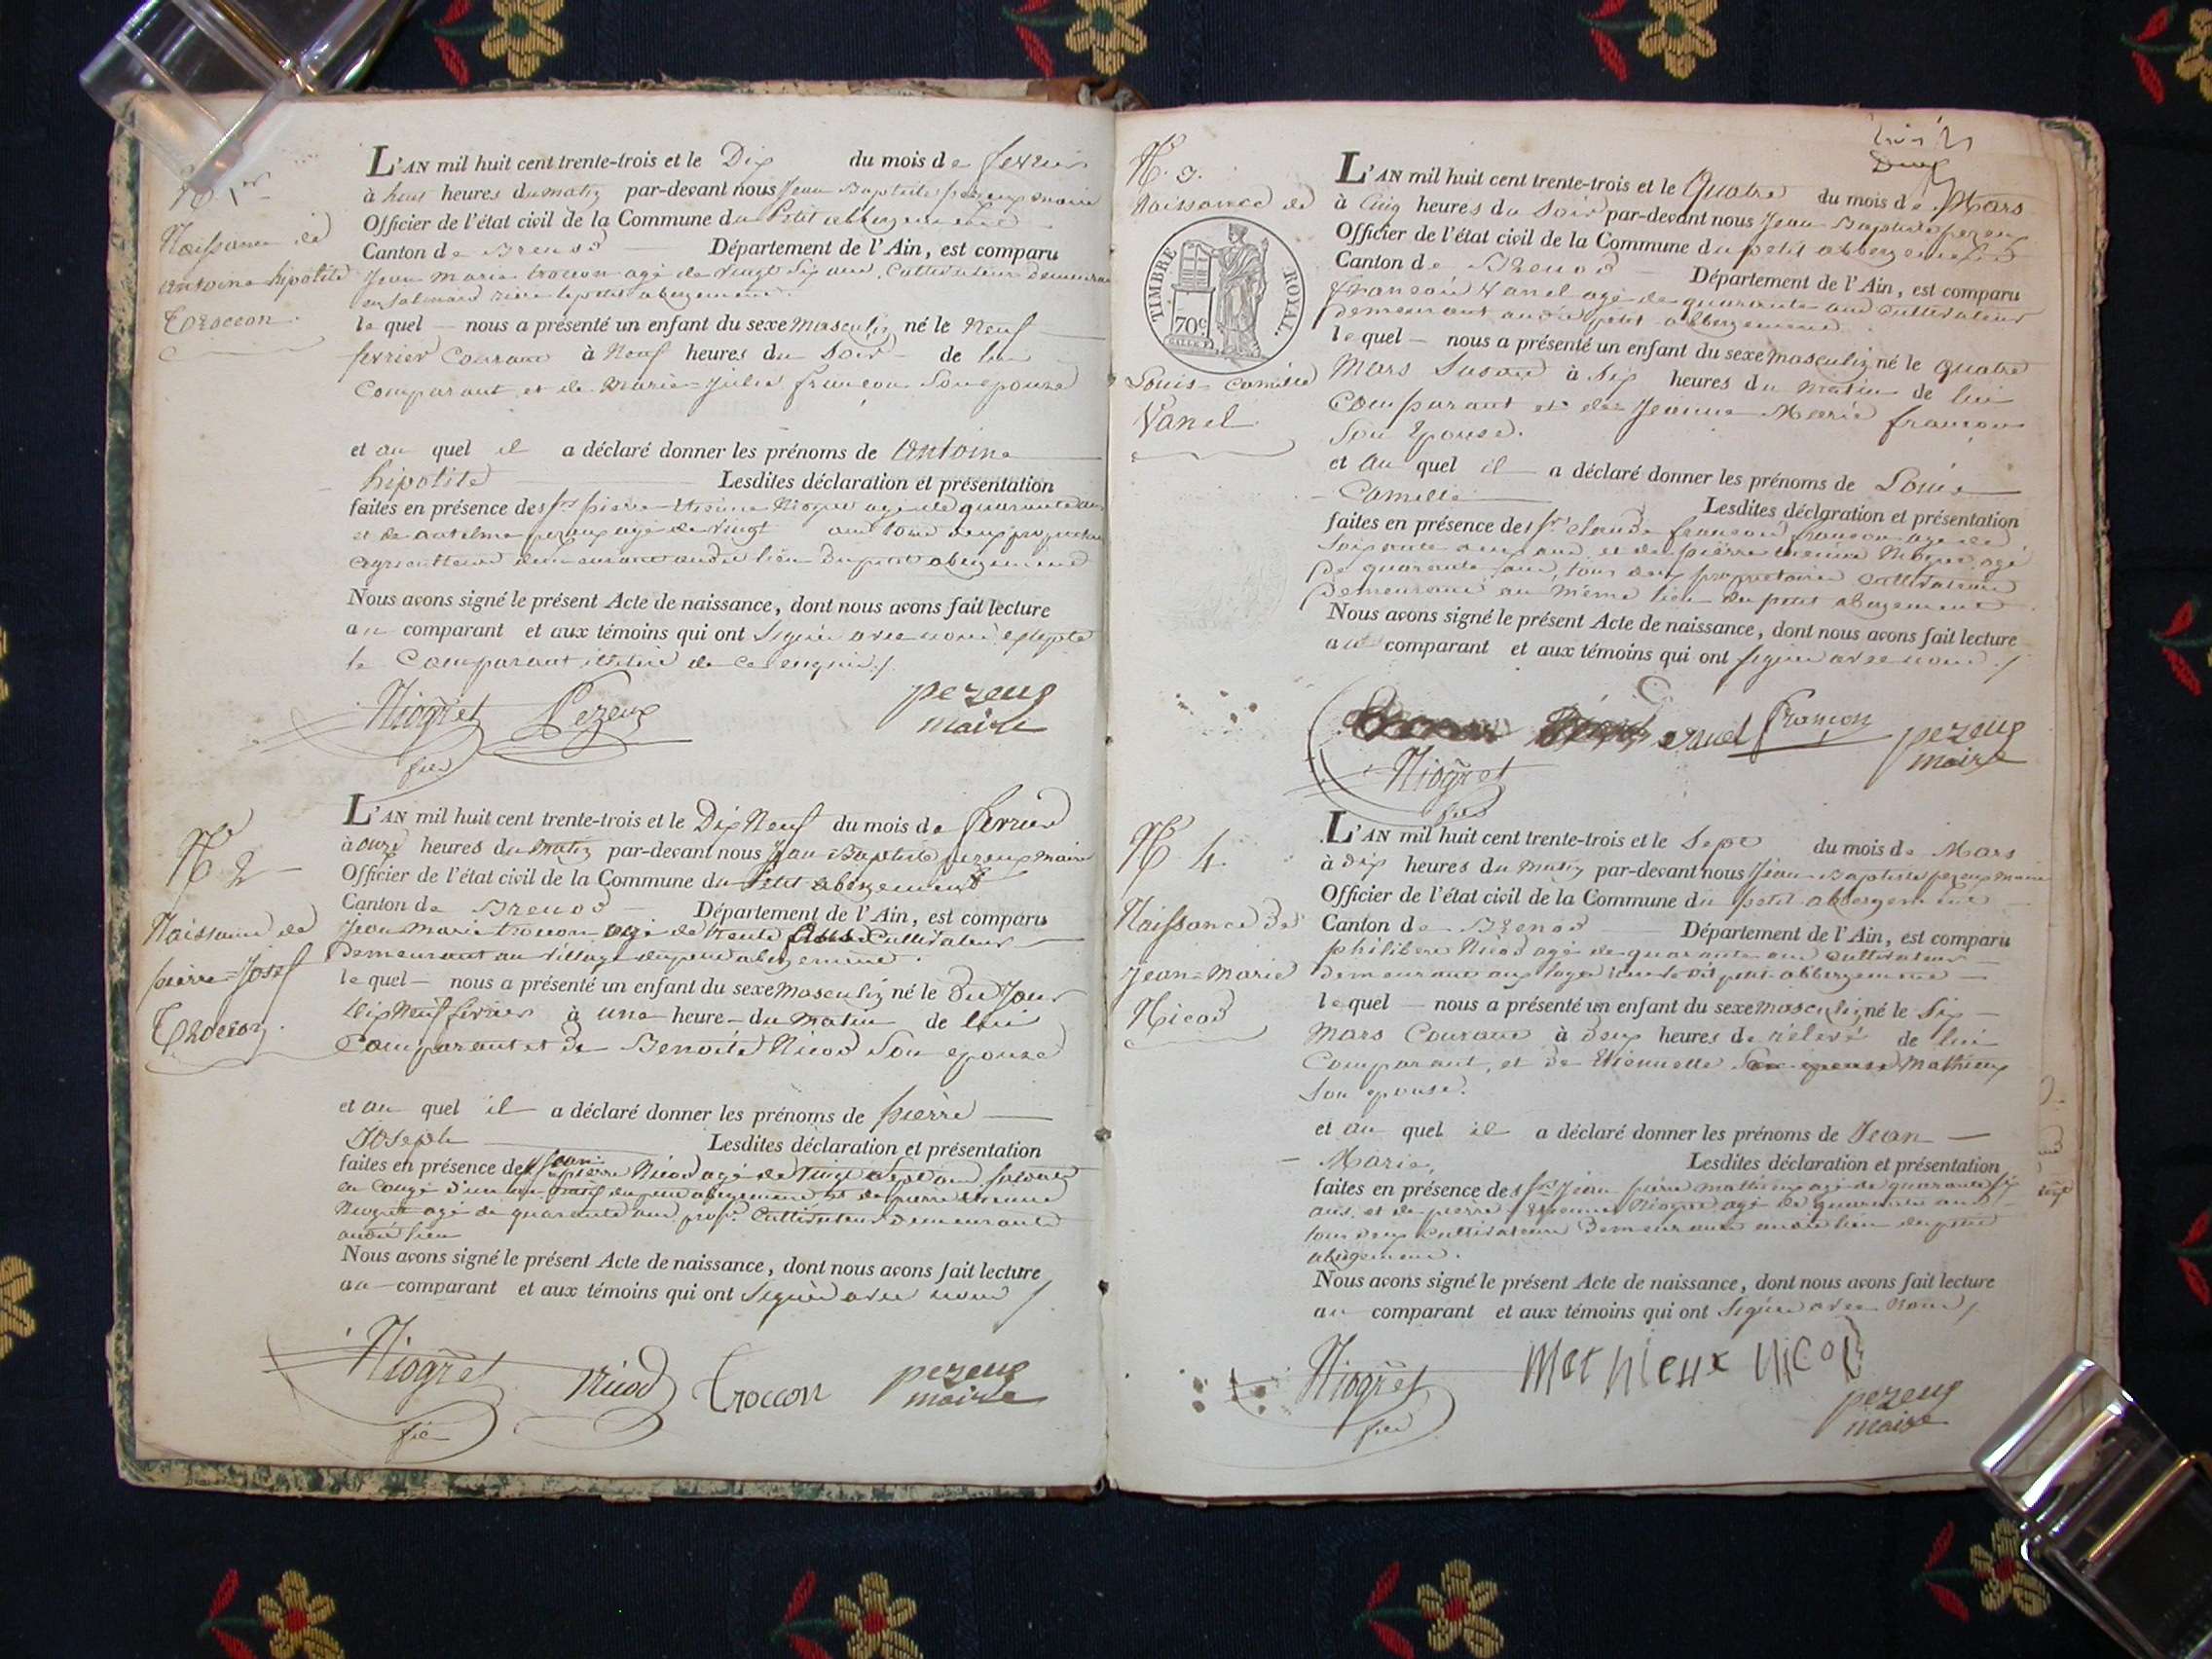 N.° 1er
Naissance de
antoine hipolite
Troccon.
L'AN mil huit cent trente-trois et le Dix du mois de fevrier
à huit heures du matin par-devant nous Jean Baptiste pezeux maire
Officier de l'état civil de la Commune du Petit abbergement
Canton de Brenod Département de l'Ain, est comparu
Jean Marie troccon agé de vingt six ans, Cultivateur demeurant
en jalinard rière le petit abergement.
le quel nous a présenté un enfant du sexe masculin né le Neuf
fevrier Courant à Neuf heures du Soir de lui
Comparant et de Marie-Julie françon Son epouse
et au quel il a déclaré donner les prénoms de Antoine
hipolite Lesdites déclaration et présentation
faites en présence des Srs pierre Etienne Niogret agé de quarante ans
et de antelme pezeux agé de vingt ans tous deux propriétaires
agriculteurs demeurant audit lieu du petit abergement
Nous avons signé le présent Acte de naissance, dont nous avons fait lecture
au comparant et aux témoins qui ont Signé avec nous excepté
le Comparant de ce enquis /.
Niogret Pezeux pezeux
fils maire
N.° 2
Naissance de
pierre=Josef
Troccon.
L'AN mil huit cent trente-trois et le Dix Neuf du mois de fevrier
à onze heures du matin par-devant nous Jean Baptiste pezeux maire
Officier de l'état civil de la Commune du Petit abergement
Canton de Brenod Département de l'Ain, est comparu
Jean Marie troccon agé de trente Cultivateur
Demeurant au village du petit abergement.
le quel nous a présenté un enfant du sexe Masculin né le Du Jour
Dix Neuf fevrier à une heure du matin de lui
Comparant et de Benoite Nicod Son epouse
et au quel il a déclaré donner les prénoms de pierre
Joseph Lesdites déclaration et présentation
faites en présence des Jean pierre Nicod agé de vingt Sept ans soldat
en Congé d'un an du petit abergement et de pierre Etienne
Niogret agé de quarante ans prop.re Cultivateur Demeurants
audit lieu
Nous avons signé le présent Acte de naissance, dont nous avons fait lecture
au comparant et aux témoins qui ont Signé avec nous /
Niogret Nicod Troccon pezeux
fils maire
Deux
N.° 3.
Naissance de
TIMBRE ROYAL.
70c
Louis Camille
Vanel
L'AN mil huit cent trente-trois et le Quatre du mois de Mars
à Cinq heures du Soir par-devant nous Jean Baptiste pezeux
Officier de l'état civil de la Commune du petit abbergement
Canton de Brenod Département de l'Ain, est comparu
françois Vanel agé de quarante ans Cultivateur
Demeurant audit petit abbergement
le quel nous a présenté un enfant du sexe masculin né le Quatre
Mars Susdit à Six heures du Matin de lui
Comparant et de Jeanne Marie françon
Son Epouse.
et au quel il a déclaré donner les prénoms de Louis
Camille Lesdites déclaration et présentation
faites en présence des Srs claude françois françon agé de
Soixante deux ans et de pierre Etienne Niogret agé
De quarante ans, tous deux proprietaires Cultivateurs
Demeurant au même lieu du petit abergement
Nous avons signé le présent Acte de naissance, dont nous avons fait lecture
au comparant et aux témoins qui ont signé avec nous /.
vanel françon pezeux
Niogret maire
fils
N.° 4.
Naissance de
Jean=Marie
Nicod
L'AN mil huit cent trente-trois et le Sept du mois de Mars
à dix heures du Matin par-devant nous Jean Baptiste pezeux maire
Officier de l'état civil de la Commune du petit abbergement
Canton de Brenod Département de l'Ain, est comparu
philibert Nicod agé de quarante ans Cultivateur
Demeurant aux loges rière le dit petit abbergement
le quel nous a présenté un enfant du sexe masculin né le Six
Mars Courant à deux heures de relevé de lui
Comparant, et de Etiennette Son epouse Mathieux
Son epouse.
et au quel il a déclaré donner les prénoms de Jean
Marie, Lesdites déclaration et présentation
faites en présence des Srs Jean pierre mathieux agé de quarante six
ans et de pierre Etienne Niogret agé de quarante ans
tous deux Cultivateurs Demeurant audit lieu du petit
abergement.
Nous avons signé le présent Acte de naissance, dont nous avons fait lecture
au comparant et aux témoins qui ont Signé avec Nous /.
Niogret Mathieux Nicod
fils pezeux
maire